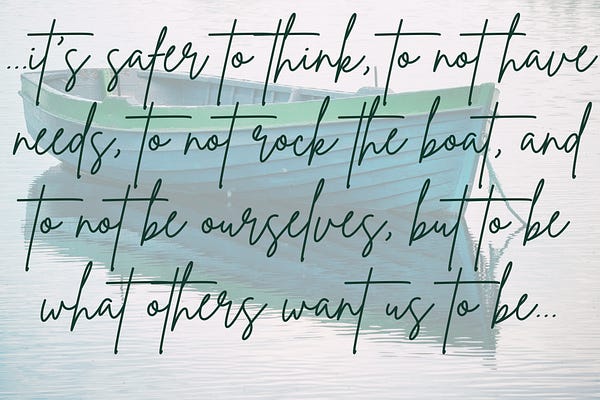 ...it's safer to think, to not have
needs, to not rock the boat, and
to not be ourselves, but to be
what others want us to be...